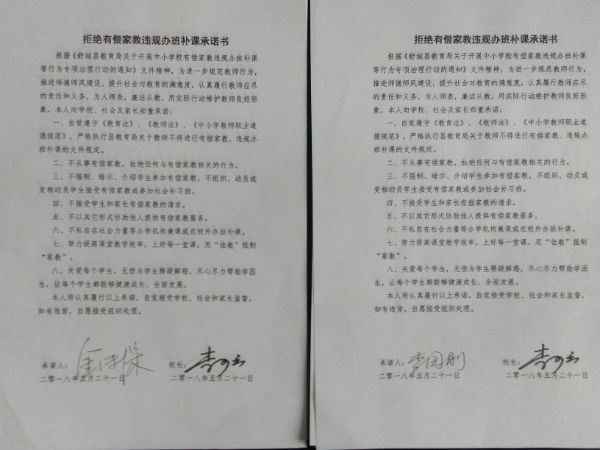 拒绝有偿家教违规办班补课承诺书
根据《舒城县教育局关于开展中小学校有偿家教违规办班补课
等行为专项治理行动的通知》文件精神，为进一步规范教师行为，
推进师德师风建设，提升社会对教育的满意度，认真履行教师应尽
的责任和义务，为人师表，廉洁从教，用实际行动维护教师良好形
象，本人向学校、社会及家长郑重承诺：
一、自觉遵守《教育法》、《教师法》、《中小学教师职业道
德规范》，严格执行县教育局关于教师不得进行有偿家教、违规办
班补课的文件规定。
二、不从事有偿家教，杜绝任何与有偿家教相关的行为。
三、不强制、暗示、介绍学生参加有偿家教，不组织、动员或
变相动员学生接受有偿家教或参加社会补习班。
四、不接受学生和家长有偿家教的请求。
五、不以其它形式协助他人提供有偿家教服务。
六、不私自在社会力量等办学机构兼课或在校外办班补课。
七、努力提高课堂教学效率，上好每一堂课，用“住教”抵制
“家教”。
八、关爱每个学生，无偿为学生释疑解惑，尽心尽力帮助学困
生，让每个学生都能够健康成长、全面发展。
本人将认真履行以上承诺，自觉接受学校、社会和家长监督，
如有违背，自愿接受组织处理。
承诺人： 校长：
二零一八年五月二十一日 二零一八年五月二十一日
拒绝有偿家教违规办班补课承诺书
根据《舒城县教育局关于开展中小学校有偿家教违规办班补课
等行为专项治理行动的通知》文件精神，为进一步规范教师行为，
推进师德师风建设，提升社会对教育的满意度，认真履行教师应尽
的责任和义务，为人师表，廉洁从教，用实际行动维护教师良好形
象，本人向学校、社会及家长郑重承诺：
一、自觉遵守《教育法》、《教师法》、《中小学教师职业道
德规范》，严格执行县教育局关于教师不得进行有偿家教、违规办
班补课的文件规定。
二、不从事有偿家教，杜绝任何与有偿家教相关的行为。
三、不强制、暗示、介绍学生参加有偿家教，不组织、动员或
变相动员学生接受有偿家教或参加社会补习班。
四、不接受学生和家长有偿家教的请求。
五、不以其它形式协助他人提供有偿家教服务。
六、不私自在社会力量等办学机构兼课或在校外办班补课。
七、努力提高课堂教学效率，上好每一堂课，用“住教”抵制
“家教”。
八、关爱每个学生，无偿为学生释疑解惑，尽心尽力帮助学困
生，让每个学生都能够健康成长、全面发展。
本人将认真履行以上承诺，自觉接受学校、社会和家长监督，
如有违背，自愿接受组织处理。
承诺人：李国刚 校长：
二零一八年五月二十一日 二零一八年五月二十一日